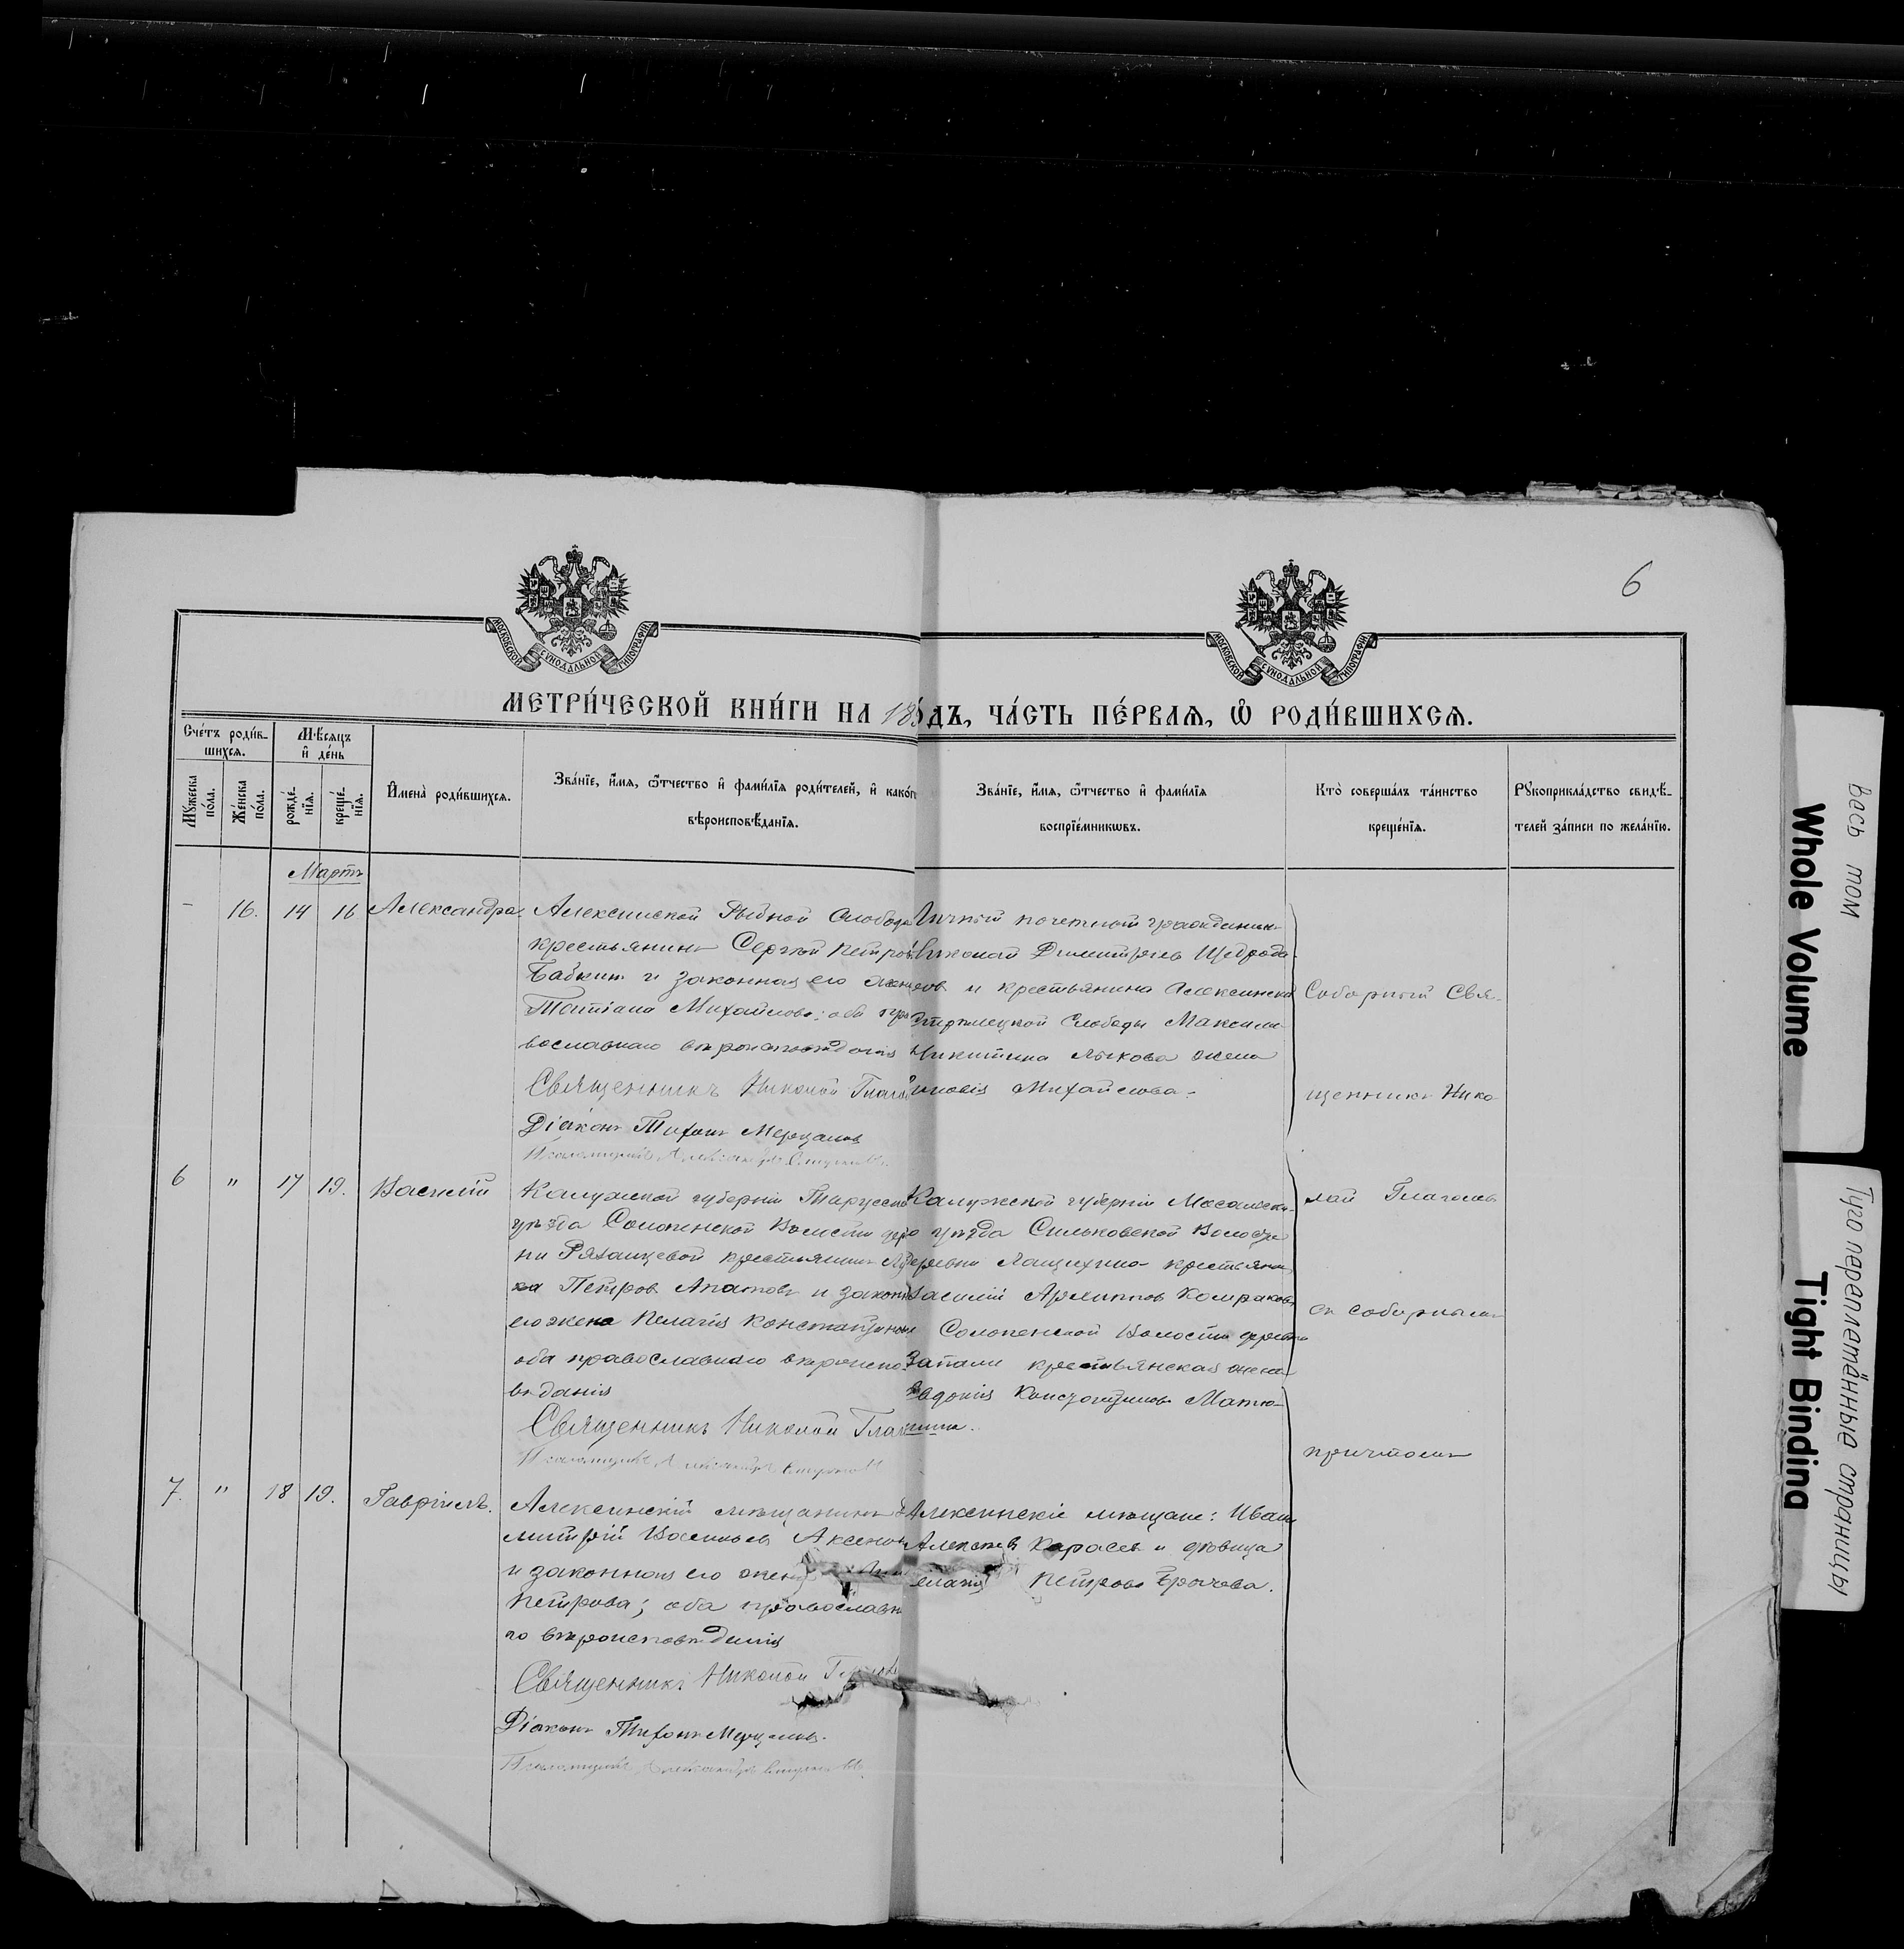 6
МОСКОВСКОЙ СѴНОДАЛЬНОЙ ТИПОГРАФІИ
МОСКОВСКОЙ СѴНОДАЛЬНОЙ ТИПОГРАФІИ
МЕТРИ́ЧЕСКОЙ КНИ́ГИ НА 18
ДЪ, ЧА́СТЬ ПЕ́РВАЯ, Ѡ РОДИ́ВШИХСЯ.
Сче́тъ роди́в-
шихся.
Мꙋ́жеска
по́ла.
Же́нска
по́ла.
Мѣ́сяцъ
и҆ де́нь
рожде́-
нїя.
креще́-
нїя.
И҆мена̀ роди́вшихся.
Зва́нїе, и҆́мя, ѻ҆́тчество и҆ фами́лїя роди́телей, и҆ како́г
вѣроисповѣ́данїя.
Зва́нїе, и҆́мя, ѻ҆́тчество и҆ фами́лїя
воспрїе́мникѡвъ.
Кто̀ соверша́лъ та́инство
креще́нїя.
Рꙋкоприкла́дство свидѣ́-
телей за́писи по жела́нїю.
Мартъ
- 16. 14 16 Александра
Алексинской Рыбной Слободы
крестьянинъ Сергѣй Петров
Бабкинъ и законная его жена
Татіана Михайлова; оба пра
вославнаго вѣроисповѣданія
Священникъ Николай Глагол
Діаконъ Тихонъ Мерцаловъ
Псаломщикъ Александръ
Личный почетный гражданинъ
Николай Димитріевъ Щедро
и крестьянина Алексинской
Стрѣлецкой Слободы Максима
Никитина Лыкова жена
Михайлова.
6 " 17 19. Василій
Калужской губерніи Тарусска
уѣзда Солопенской Волости дер
ни Рязанцевой крестьянинъ
ка Петров Апатовъ и законн
его жена Пелагія Константинова
оба православнаго вѣроиспо
вѣданія
Священникъ Николай Глаг
Псаломщикъ Александръ
Калужской губерніи Мосальска
о уѣзда Сильковской Волости
деревни крестьянинъ
Василій Архиппов Комраковъ
и Солопенской Волости деревни
крестьянская жена
Евдокія Константинова Матю-
7. " 18 19. Гавріилъ.
Алексинскій мѣщанинъ Д
митрій Васильевъ Аксенов
и законная его жена
Петрова; оба православна
го вѣроисповѣданія
Священникъ Николай Глагол
Діаконъ Тихонъ Мерцаловъ.
Псаломщикъ Александръ
Алексинскіе мѣщане: Иванъ
Алексѣевъ Карасевъ и дѣвица
Пелагія Петрова
Соборный Свя-
щенникъ Нико
лай Глаголевъ
съ соборнымъ
причтомъ
Весь том
Whole Volume
Туго переплетённые страницы
Tight Binding